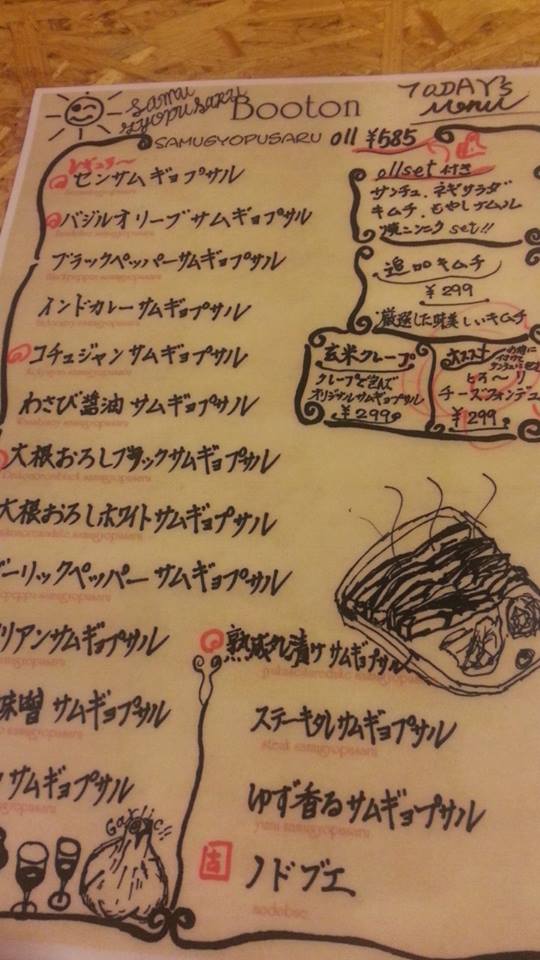 samu gyopusaru
Booton
TODAY's menu
SAMUGYOPUSARU all ¥585
レギュラー
センサムギョプサル
バジルオリーブサムギョプサル
ブラックペッパーサムギョプサル
インドカレーサムギョプサル
コチュジャンサムギョプサル
わさび醤油サムギョプサル
大根おろしブラックサムギョプサル
大根おろしホワイトサムギョプサル
ーリックペッパーサムギョプサル
リアンサムギョプサル
味噌サムギョプサル
サムギョプサル
Garlic!!
allset付き
サンチュ、ネギサラダ
キムチ、もやしナムル
焼ニンニクset!!
追加キムチ
¥299
厳選した美味しいキムチ
玄米クレープ
クレープで包んで
オリジナルサムギョプサル
¥299
オススメ
とろ〜り
チーズフォンデュ
¥299
熟成タレ漬けサムギョプサル
ステーキタレサムギョプサル
steak samgyopusaru
ゆず香るサムギョプサル
yuzu samgyopusaru
ノドブエ
nodobue